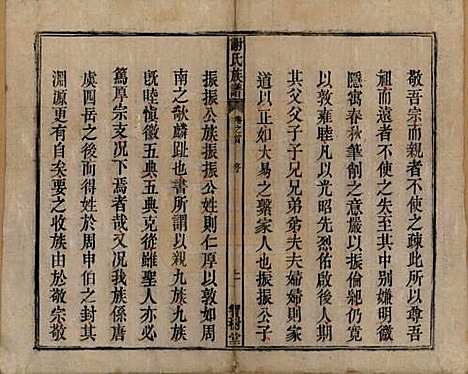 敬吾宗而親者不使之疎此所以尊吾
祖而遠者不使之失至其中別嫌明微
隱寓春秋筆削之意嚴以振偷薄仍寬
以敦雍睦凡以光昭先烈佑啟後人期
其父父子子兄兄弟弟夫夫婦婦則家
道以正亦大易之繫家人也振振公子
謝氏族譜
卷之首
序
上
寶樹堂
振振公族振振公姓則仁厚以敦如周
南之歌麟趾也書所謂以親九族九族
既睦慎徽五典五典克從雖聖人亦必
篤厚宗支況下焉者哉又況我族係唐
虞四岳之後而得姓於周申伯之封其
淵源更有自矣要之收族由於敬宗敬